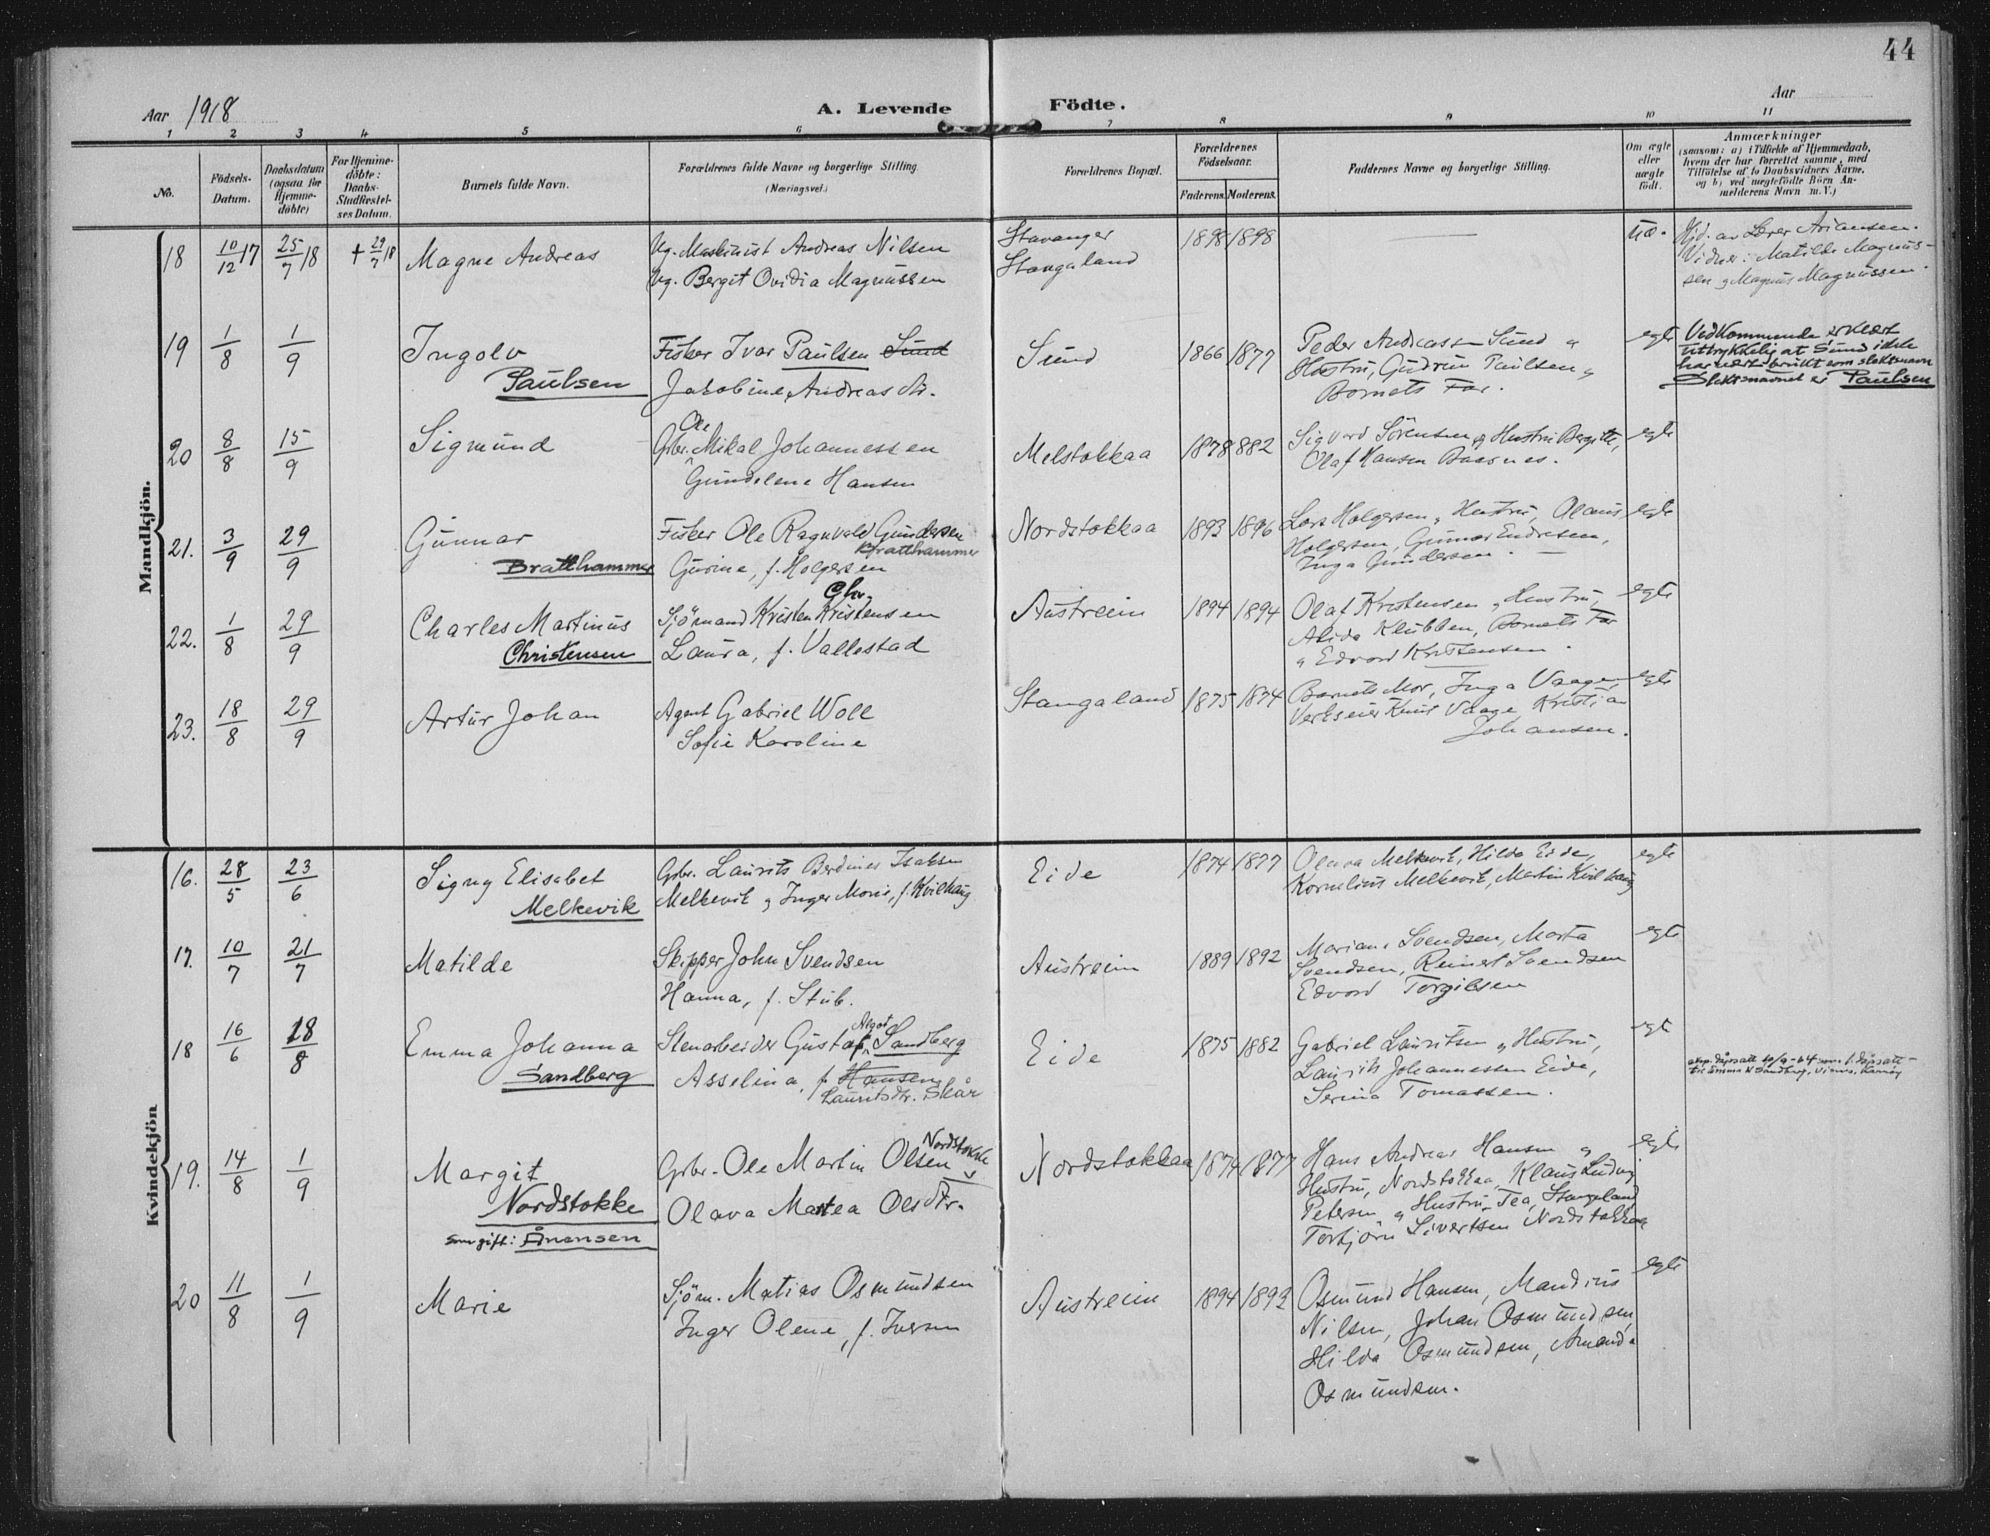 44
Aar 1918
A. Levende Födte.
Aar
1 2 3 4 5 6 7 8 9 10 11
No.
Födsels-
Datum.
Daabsdatum
(ogsaa for
Hjemme-
döbte)
For Hjemme-
döbte:
Daabs-
Stadfæstel-
ses Datum.
Barnets fulde Navn.
Forældrenes fulde Navne og borgerlige Stilling.
(Næringsvei.)
Forældrenes Bopæl.
Forældrenes
Födselsaar.
Faderens. Moderens.
Faddernes Navne og borgerlige Stilling.
Om ægte
eller
uægte
født.
Anmærkninger
(saasom: a) i Tilfælde af Hjemmedaab,
hvem der har forrettet samme, med
Tilföielse af to Daabsvidners Navne,
og b) ved uægtefödte Börn An-
melderens Navn m. V.)
Mandkjön.
18 10/12 17 25/7 18 + 29/7 18
Magne Andreas
Ug. Maskinist Andreas Nilsen
Ug. Bergit Ovidia Magnussen
Stavanger
Stangaland
1898 1898
uæ.
Hjd. av Lærer Ariansen.
Vidner: Matilde Magnus-
sen og Magnus Magnussen.
19 1/8 1/9
Ingolv
Paulsen
Fisker Ivar Paulsen Sund
Jakobine Andreas dr.
Sund
1866 1877
Peder Andreassen Sund og
Hustru, Gudrun Paulsen og
Barnets Far.
egte
Vedkommende erklært
uttrykkelig at Sund ikke
har vært brukt som slektsnavn
Slektsnavnet er Paulsen
20 8/8 15/9
Sigmund
Ole
Gbr. Mikal Johannessen
Gundelene Hansen
Melstokkaa
1878 1882
Sigvard Sörensen og Hustru Bergitte,
Olaf Hansen Baasnes.
egte
21. 3/9 29/9
Gunnar
Bratthammer
Fisker Ole Ragnvald Gundersen
Bratthammer
Gurine, f. Holgersen
Nordstokkaa
1893 1896
Lars Holgersen og Hustru, Olaus
Holgersen, Gunnar Endresen,
Inga Gundersen.
egte
22. 1/8 29/9
Charles Martinus
Christensen
Chr.
Sjömand Kristen Kristensen
Laura, f. Vallestad
Austreim
1894 1894
Olaf Kristensen og Hustru,
Alida Klubben, Barnets Far
og Edvard Kristensen.
egte
23. 18/8 29/9
Artur Johan
Agent Gabriel Woll
Sofie Karoline
Stangaland
1875 1874
Barnets Mor, Inga Vaage,
Verkseier Knut Vaage, Kristian
Johansen.
egte
Kvindekjön
16. 28/5 23/6
Signy Elisabet
Melkevik
Gbr. Laurits Berdines Isaksen
Melkevik og Inger Marie, f. Kvilhaug
Eide
1874 1877
Olava Melkevik, Hilda Eide,
Kornelius Melkevik, Martin Kvilhaug
egte
17. 10/7 21/7
Matilde
Skipper John Svendsen
Hanna, f. Stub.
Austreim
1889 1892
Mariane Svendsen, Marta
Svendsen, Reinert Svendsen
Edvard Torgilsen
egte
18 16/6 18/8
Emma Johanna
Sandberg
Algot
Stenarbeider Gustaf Sandberg
Asselina, f. Hansen
Lauritsdtr. Skår
Eide
1875 1882
Gabriel Lauritsen og Hustru,
Laurits Johannessen Eide,
Serina Tomassen.
egte
19. 14/8 1/9
Margit
Nordstokke
som gift: Ånensen
Nordstokke
Gbr. Ole Martin Olsen
Olava Martea Olsdtr.
Nordstokkaa
1874 1877
Hans Andreas Hansen og
Hustru, Nordstokkaa, Klaus Ludvig
Petersen og Hustru Tea, Stangeland,
Torbjörn Sivertsen Nordstokkaa
egte
20 11/8 1/9
Marie
Sjöm. Matias Osmundsen
Inger Olene, f. Iversen
Austreim
1894 1892
Osmund Hansen, Mandius
Nilsen, Johan Osmundsen,
Hilda Osmundsen, Amanda
Osmundsen.
egte